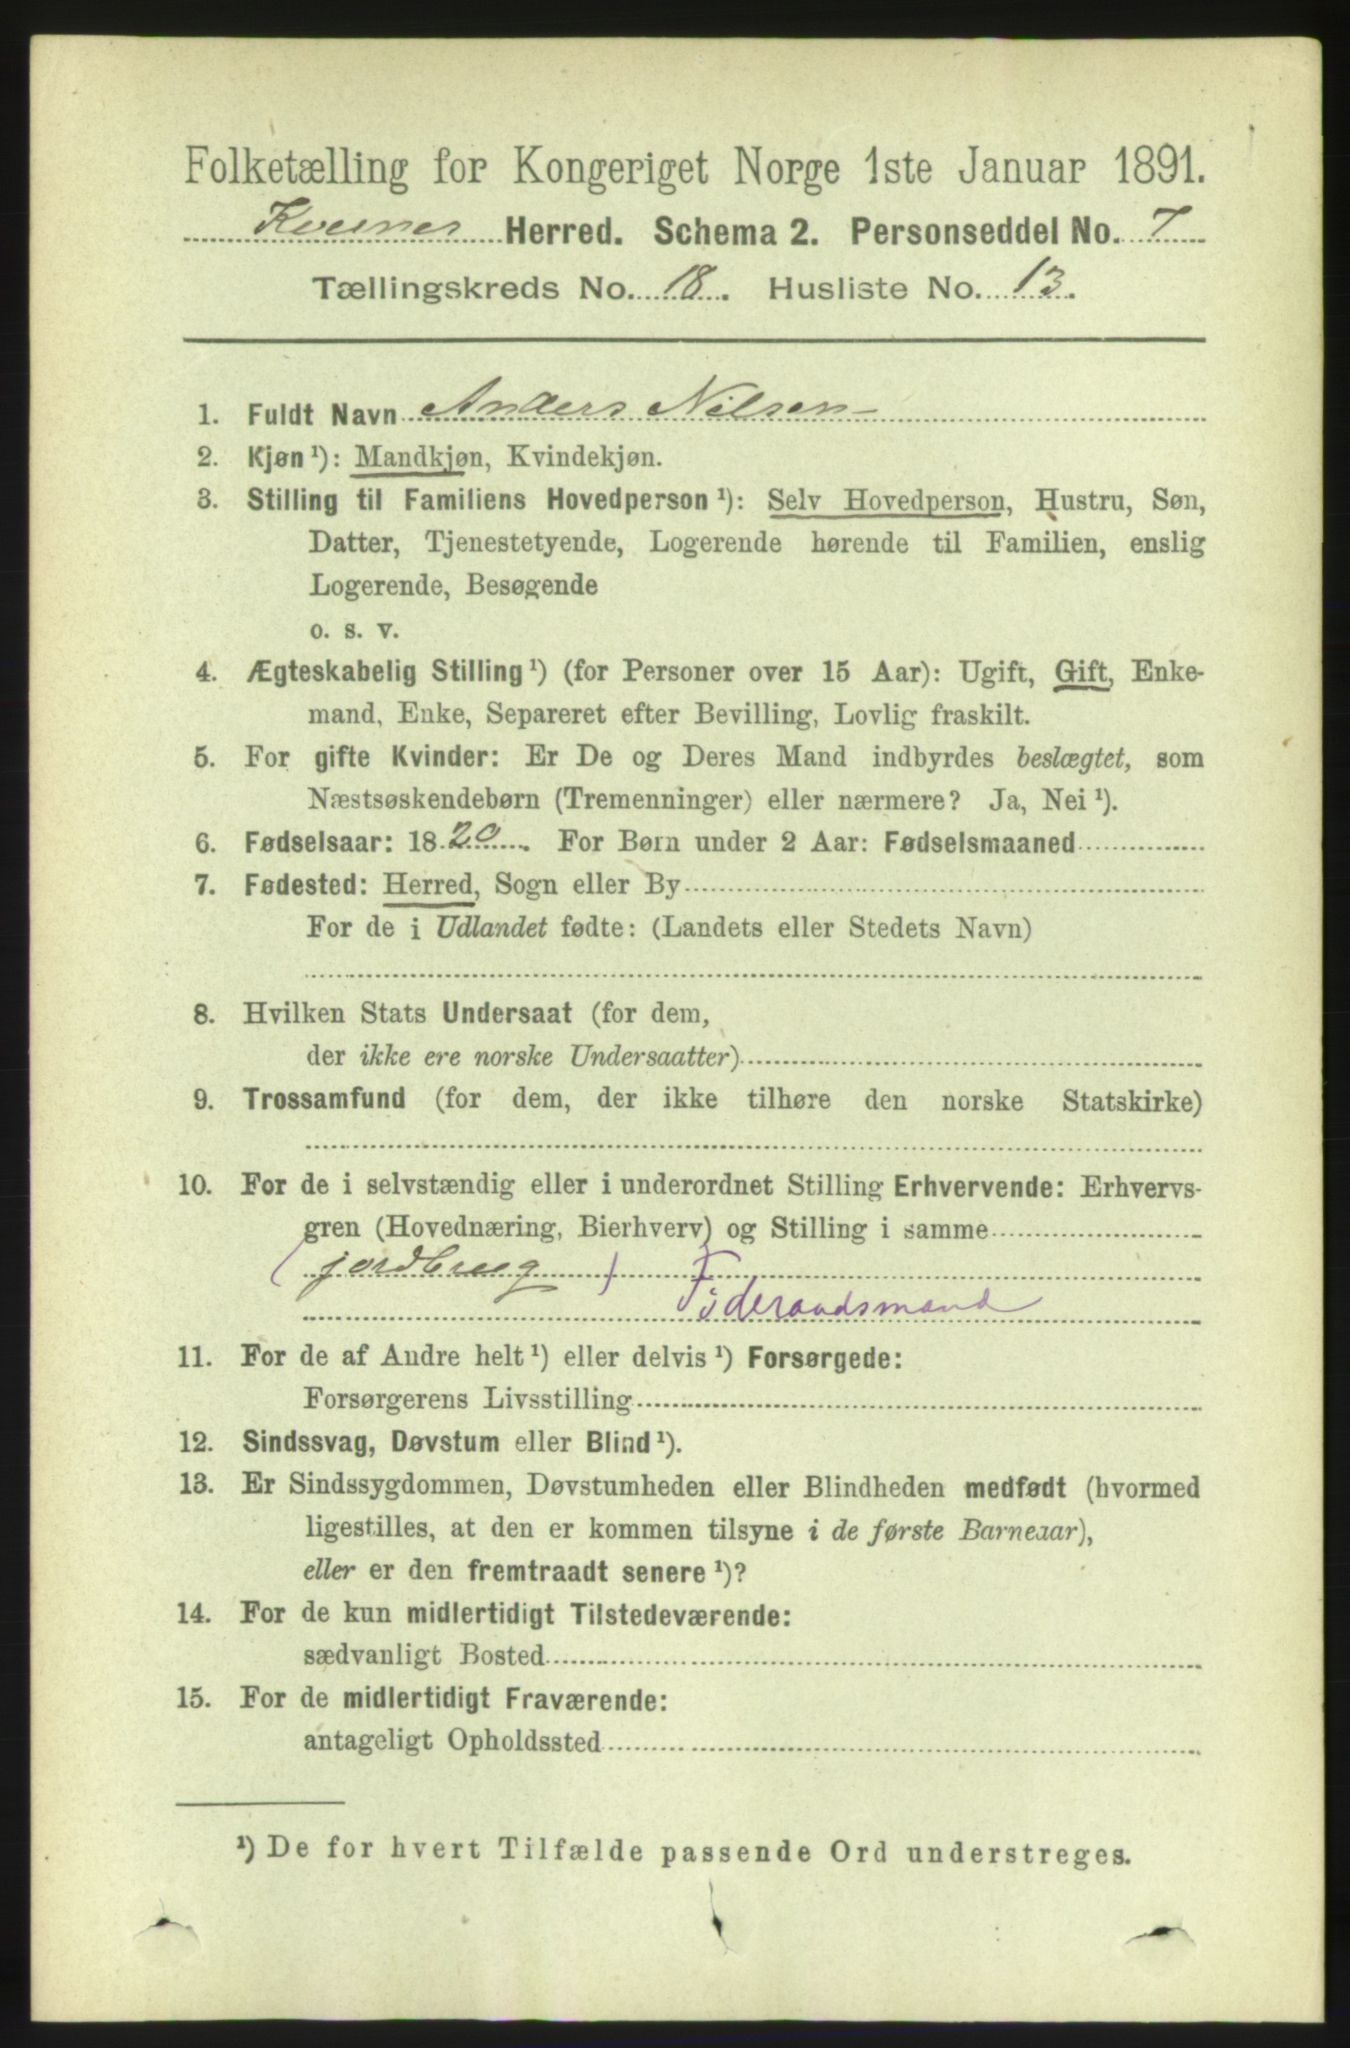 Folketælling for Kongeriget Norge 1ste Januar 1891.
Kvernes Herred. Schema 2. Personseddel No. 7
Tællingskreds No. 18. Husliste No. 13.
1. Fuldt Navn Anders Nilsen
2. Kjøn¹): Mandkjøn, Kvindekjøn.
3. Stilling til Familiens Hovedperson¹): Selv Hovedperson, Hustru, Søn,
Datter, Tjenestetyende, Logerende hørende til Familien, enslig
Logerende, Besøgende
o. s. v.
4. Ægteskabelig Stilling¹) (for Personer over 15 Aar): Ugift, Gift, Enke-
mand, Enke, Separeret efter Bevilling, Lovlig fraskilt.
5. For gifte Kvinder: Er De og Deres Mand indbyrdes beslægtet, som
Næstsøskendebørn (Tremenninger) eller nærmere? Ja, Nei¹).
6. Fødselsaar: 1820. For Børn under 2 Aar: Fødselsmaaned
7. Fødested: Herred, Sogn eller By
For de i Udlandet fødte: (Landets eller Stedets Navn)
8. Hvilken Stats Undersaat (for dem,
der ikke ere norske Undersaatter)
9. Trossamfund (for dem, der ikke tilhøre den norske Statskirke)
10. For de i selvstændig eller i underordnet Stilling Erhvervende: Erhvervs-
gren (Hovednæring, Bierhverv) og Stilling i samme
(jordbrug)
Föderaadsmand
11. For de af Andre helt¹) eller delvis¹) Forsørgede:
Forsørgerens Livsstilling
12. Sindssvag, Døvstum eller Blind¹).
13. Er Sindssygdommen, Døvstumheden eller Blindheden medfødt (hvormed
ligestilles, at den er kommen tilsyne i de første Barneaar),
eller er den fremtraadt senere¹)?
14. For de kun midlertidigt Tilstedeværende:
sædvanligt Bosted
15. For de midlertidigt Fraværende:
antageligt Opholdssted
¹) De for hvert Tilfælde passende Ord understreges.